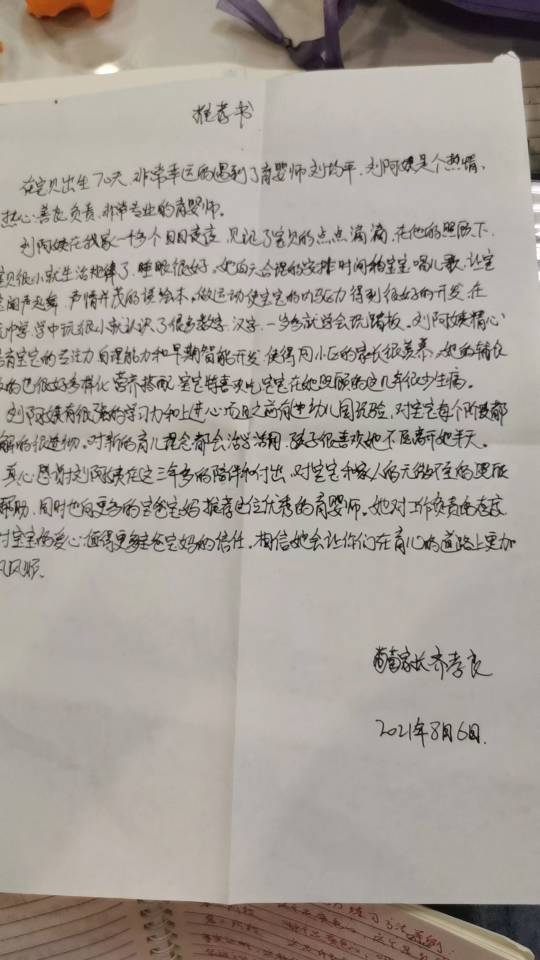 推荐书
在宝贝出生70天，非常幸运的遇到了育婴师刘均平，刘阿姨是个热情、
热心、善良、负责、非常专业的育婴师。
刘阿姨在我家一千多个日日夜夜，见证了宝贝的点点滴滴，在他的照顾下，
宝贝很小就生活规律了，睡眠很好，她白天合理的安排时间和宝宝唱儿歌，让宝
宝闻声起舞，声情并茂的读绘本，做运动使宝宝的 得到很好的开发，在
玩中学，学中玩很小就认识了很多数字、汉字，一岁多就学会玩踏板。刘阿姨精心
培育宝宝的专注力自理能力和早期智能开发，使得同小区的家长很羡慕，她的辅食
做的也很好多样化，营养搭配，宝宝特喜欢吃宝宝在她照顾的这几年很少生病。
刘阿姨有很强的学习力和上进心，而且之前有过幼儿园经验，对宝宝每个阶段都
解的很透彻。对新的育儿理念都会活学活用，孩子很喜欢她不愿离开她半天。
真心感谢刘阿姨在这三年多的陪伴和付出，对宝宝和家人的无微不至的照顾
帮助，同时也向更多的宝爸宝妈推荐这位优秀的育婴师。她对工作负责的态度
对宝宝的爱心值得更多宝爸宝妈的信任。相信她会让你们在育儿的道路上更加
家长齐孝良
2021年8月6日.